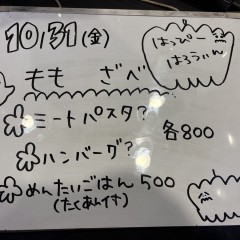 10/31(金)
はっぴー
はろうぃん
もも ざべ
ミートパスタ?
各800
ハンバーグ?
めんたいごはん 500
(たくあん付)